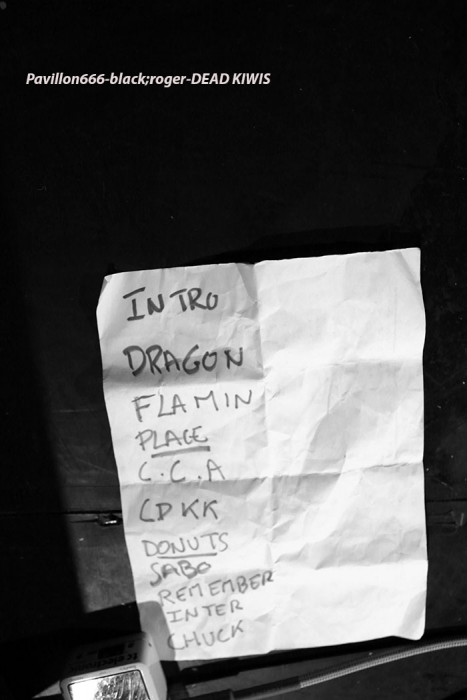 Pavillon666-black;roger-DEAD KIWIS
INTRO
DRAGON
FLAMIN
PLAGE
C.C.A
CDKK
DONUTS
SABO
REMEMBER
INTER
CHUCK